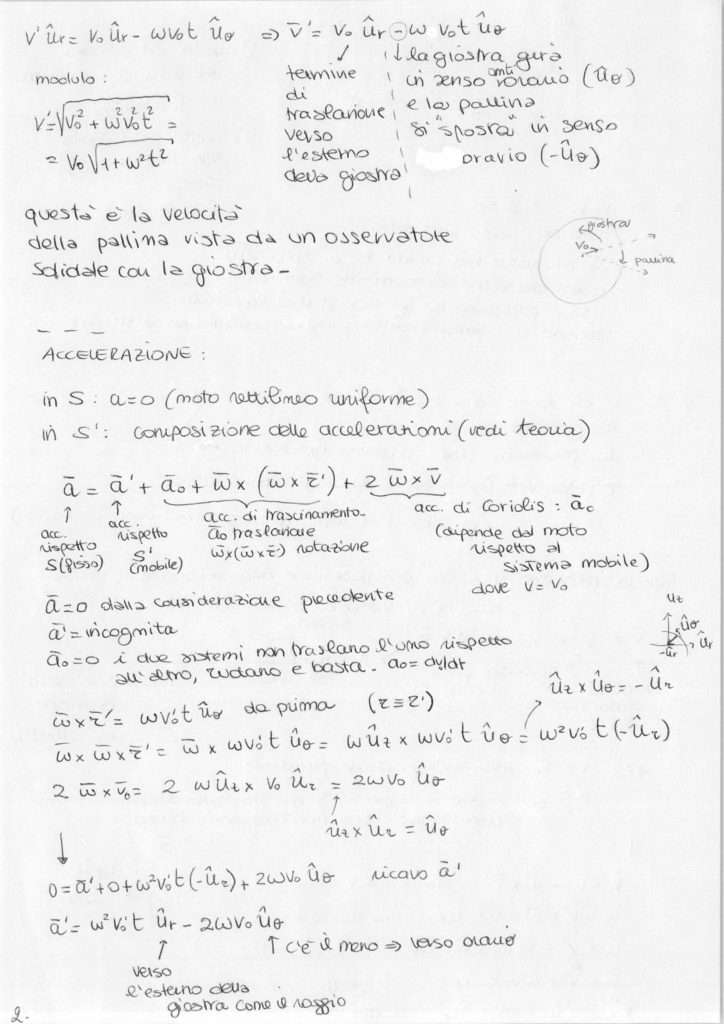 v' ûr = v₀ ûr - ωv₀t ûθ ⇒ v̄' = v₀ ûr - ω v₀ t ûθ
modulo:
v' = √(v₀² + ω²v₀²t²) =
= v₀ √(1+ω²t²)
termine
di
traslazione
verso
l'esterno
della giostra
la giostra gira
in senso antiorario (ûθ)
e la pallina
si "sposta" in senso
orario (-ûθ)
questa è la velocità
della pallina vista da un osservatore
solidale con la giostra -
giostra
v₀
pallina
ACCELERAZIONE:
in S: a=0 (moto rettilineo uniforme)
in S': composizione delle accelerazioni (vedi teoria)
ā = ā' + ā₀ + ω̄ × (ω̄ × r̄') + 2 ω̄ × v̄
acc.
rispetto
S (fisso)
acc.
rispetto
S'
(mobile)
acc. di trascinamento
ā₀ traslazione
ω̄×(ω̄×r̄') rotazione
acc. di Coriolis: āc
(dipende dal moto
rispetto al
sistema mobile)
dove v = v₀
ā = 0 dalla considerazione precedente
ā' = incognita
ā₀=0 i due sistemi non traslano l'uno rispetto
all'altro, ruotano e basta. a₀ = dv/dt
uz
ûθ
ûr
-ûr
ûz × ûθ = -ûr
ω̄ × r̄' = ωv₀'t ûθ da prima (r ≡ r')
ω̄ × ω̄ × r̄' = ω̄ × ωv₀'t ûθ = ωûz × ωv₀'t ûθ = ω²v₀'t (-ûr)
2 ω̄ × v̄₀ = 2 ωûz × v₀ ûr = 2ωv₀ ûθ
ûz × ûr = ûθ
0 = ā' + 0 + ω²v₀'t (-ûr) + 2ωv₀ ûθ ricavo ā'
ā' = ω²v₀'t ûr - 2ωv₀ ûθ
↑ c'è il meno ⇒ verso orario
verso
l'esterno della
giostra come il raggio
2.